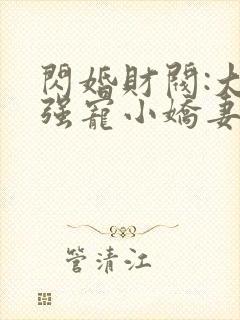 閃婚財閥:大
强寵小嬌妻
管清江